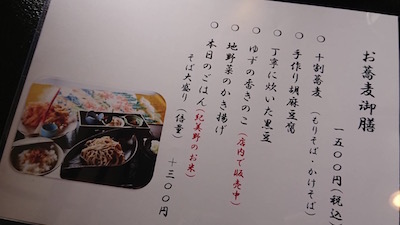 お蕎麦御膳
一五００円（税込）
○ 十割蕎麦（もりそば・かけそば）
○ 手作り胡麻豆腐
○ 丁寧に炊いた黒豆
○ ゆずの香きのこ（店内で販売中）
○ 地野菜のかき揚げ
○ 本日のごはん（紀美野のお米）
そば大盛り（倍量） ＋三００円